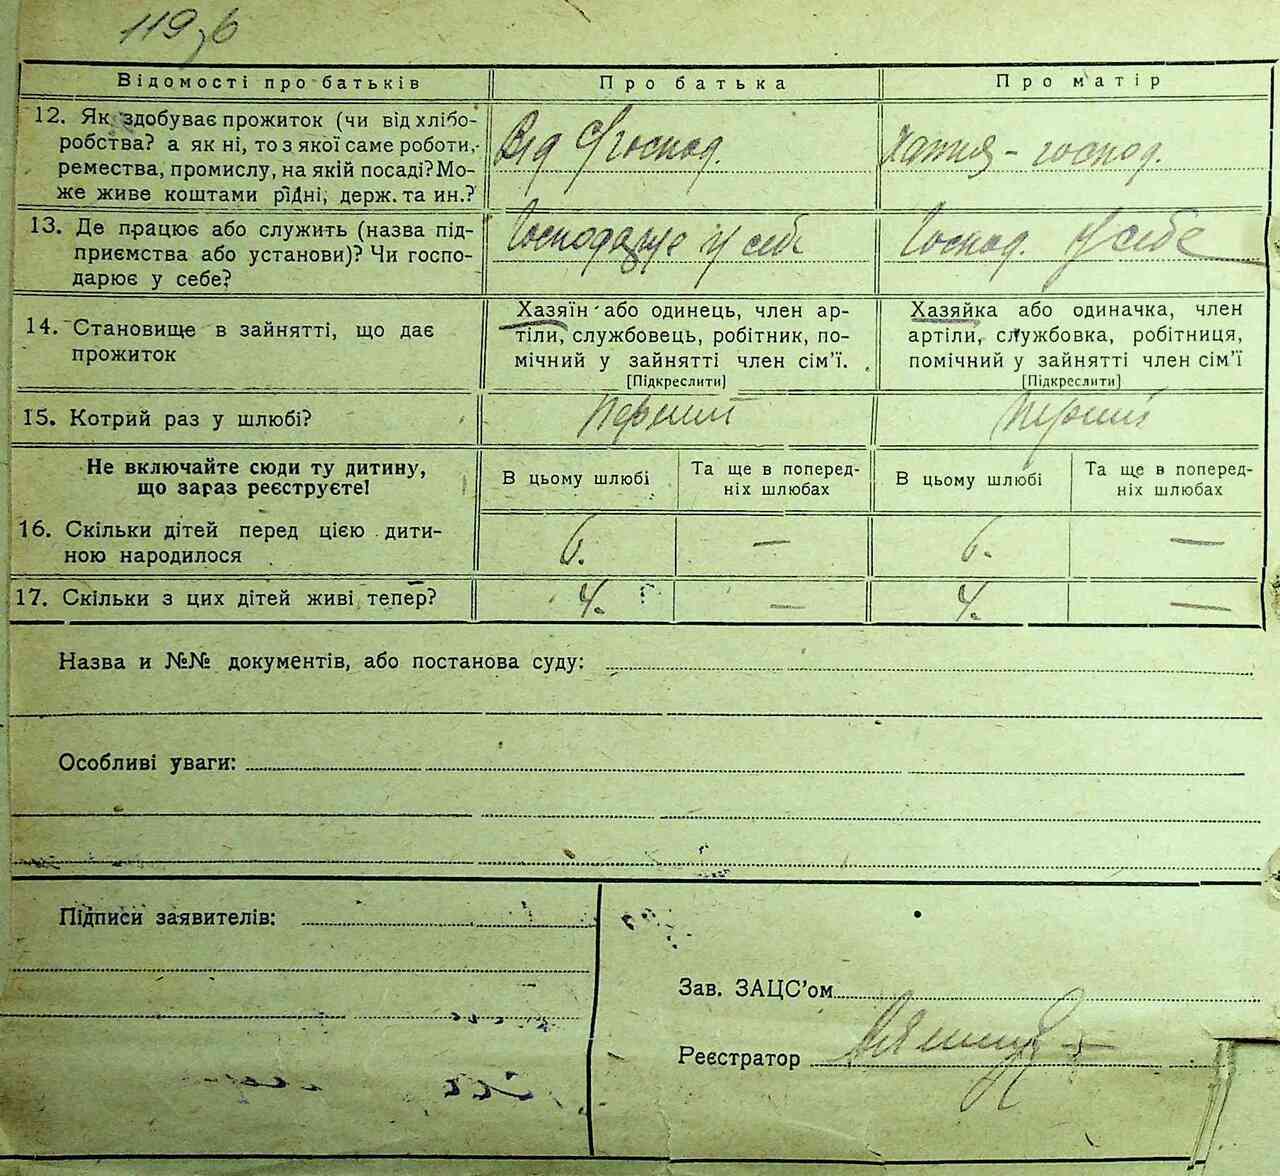 119зв
Відомості про батьків
Про батька
Про матір
12. Як здобуває прожиток (чи від хлібо-
робства? а як ні, то з якої саме роботи,
ремества, промислу, на якій посаді? Мо-
же живе коштами рідні, держ. та ин.?
Від с/господ.
Хатня - господ.
13. Де працює або служить (назва під-
приємства або установи)? Чи госпо-
дарює у себе?
Господарує у себе
Господ. у себе
14. Становище в зайнятті, що дає
прожиток
Хазяїн або одинець, член ар-
тіли, службовець, робітник, по-
мічний у зайнятті член сім'ї.
[Підкреслити]
Хазяйка або одиначка, член
артіли, службовка, робітниця,
помічний у зайнятті член сім'ї
[Підкреслити]
15. Котрий раз у шлюбі?
Перший
Перший
Не включайте сюди ту дитину,
що зараз реєструєте!
В цьому шлюбі
Та ще в поперед-
ніх шлюбах
В цьому шлюбі
Та ще в поперед-
ніх шлюбах
16. Скільки дітей перед цією дити-
ною народилося
6. — 6. —
17. Скільки з цих дітей живі тепер?
4. — 4. —
Назва и №№ документів, або постанова суду:
Особливі уваги:
Підписи заявителів:
Зав. ЗАЦС'ом
Реєстратор